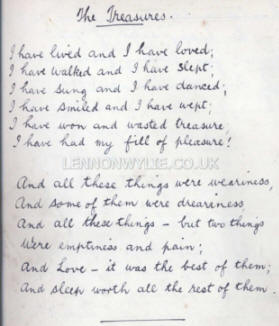 The Treasures.
I have lived and I have loved;
I have walked and I have slept;
I have sung and I have danced;
I have smiled and I have wept;
I have won and wasted treasure,
I have had my fill of pleasure!
LENNONWYLIE.CO.UK
And all these things were weariness,
And some of them were dreariness,
And all these things - but two things
Were emptiness and pain;
And Love - it was the best of them;
And sleep worth all the rest of them.